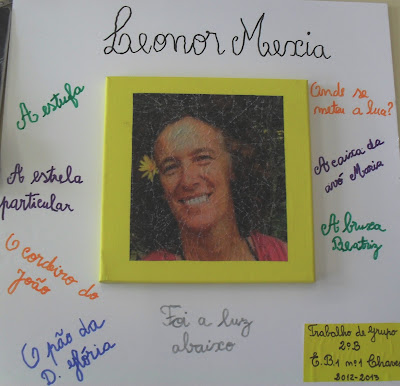 Leonor Mexia
A estufa
A estrela
particular
O cordeiro do
João
O pão da
D. Glória
Foi a luz
abaixo
Onde se
meteu a lua?
A caixa da
avó Maria
A bruxa
Beatriz
Trabalho de Grupo
2º3
E.B.1 nº1 Chaves
2012-2013